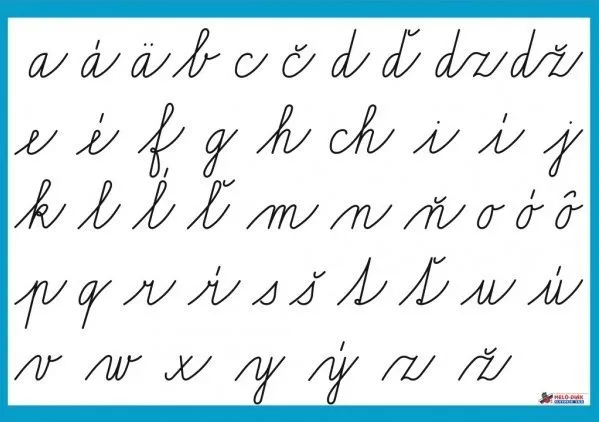 a á ä b c č d ď dz dž
e é f g h ch i í j
k l ĺ ľ m n ň o ó ô
p q r ŕ s š t ť u ú
v w x y ý z ž
MELÓ-DIÁK